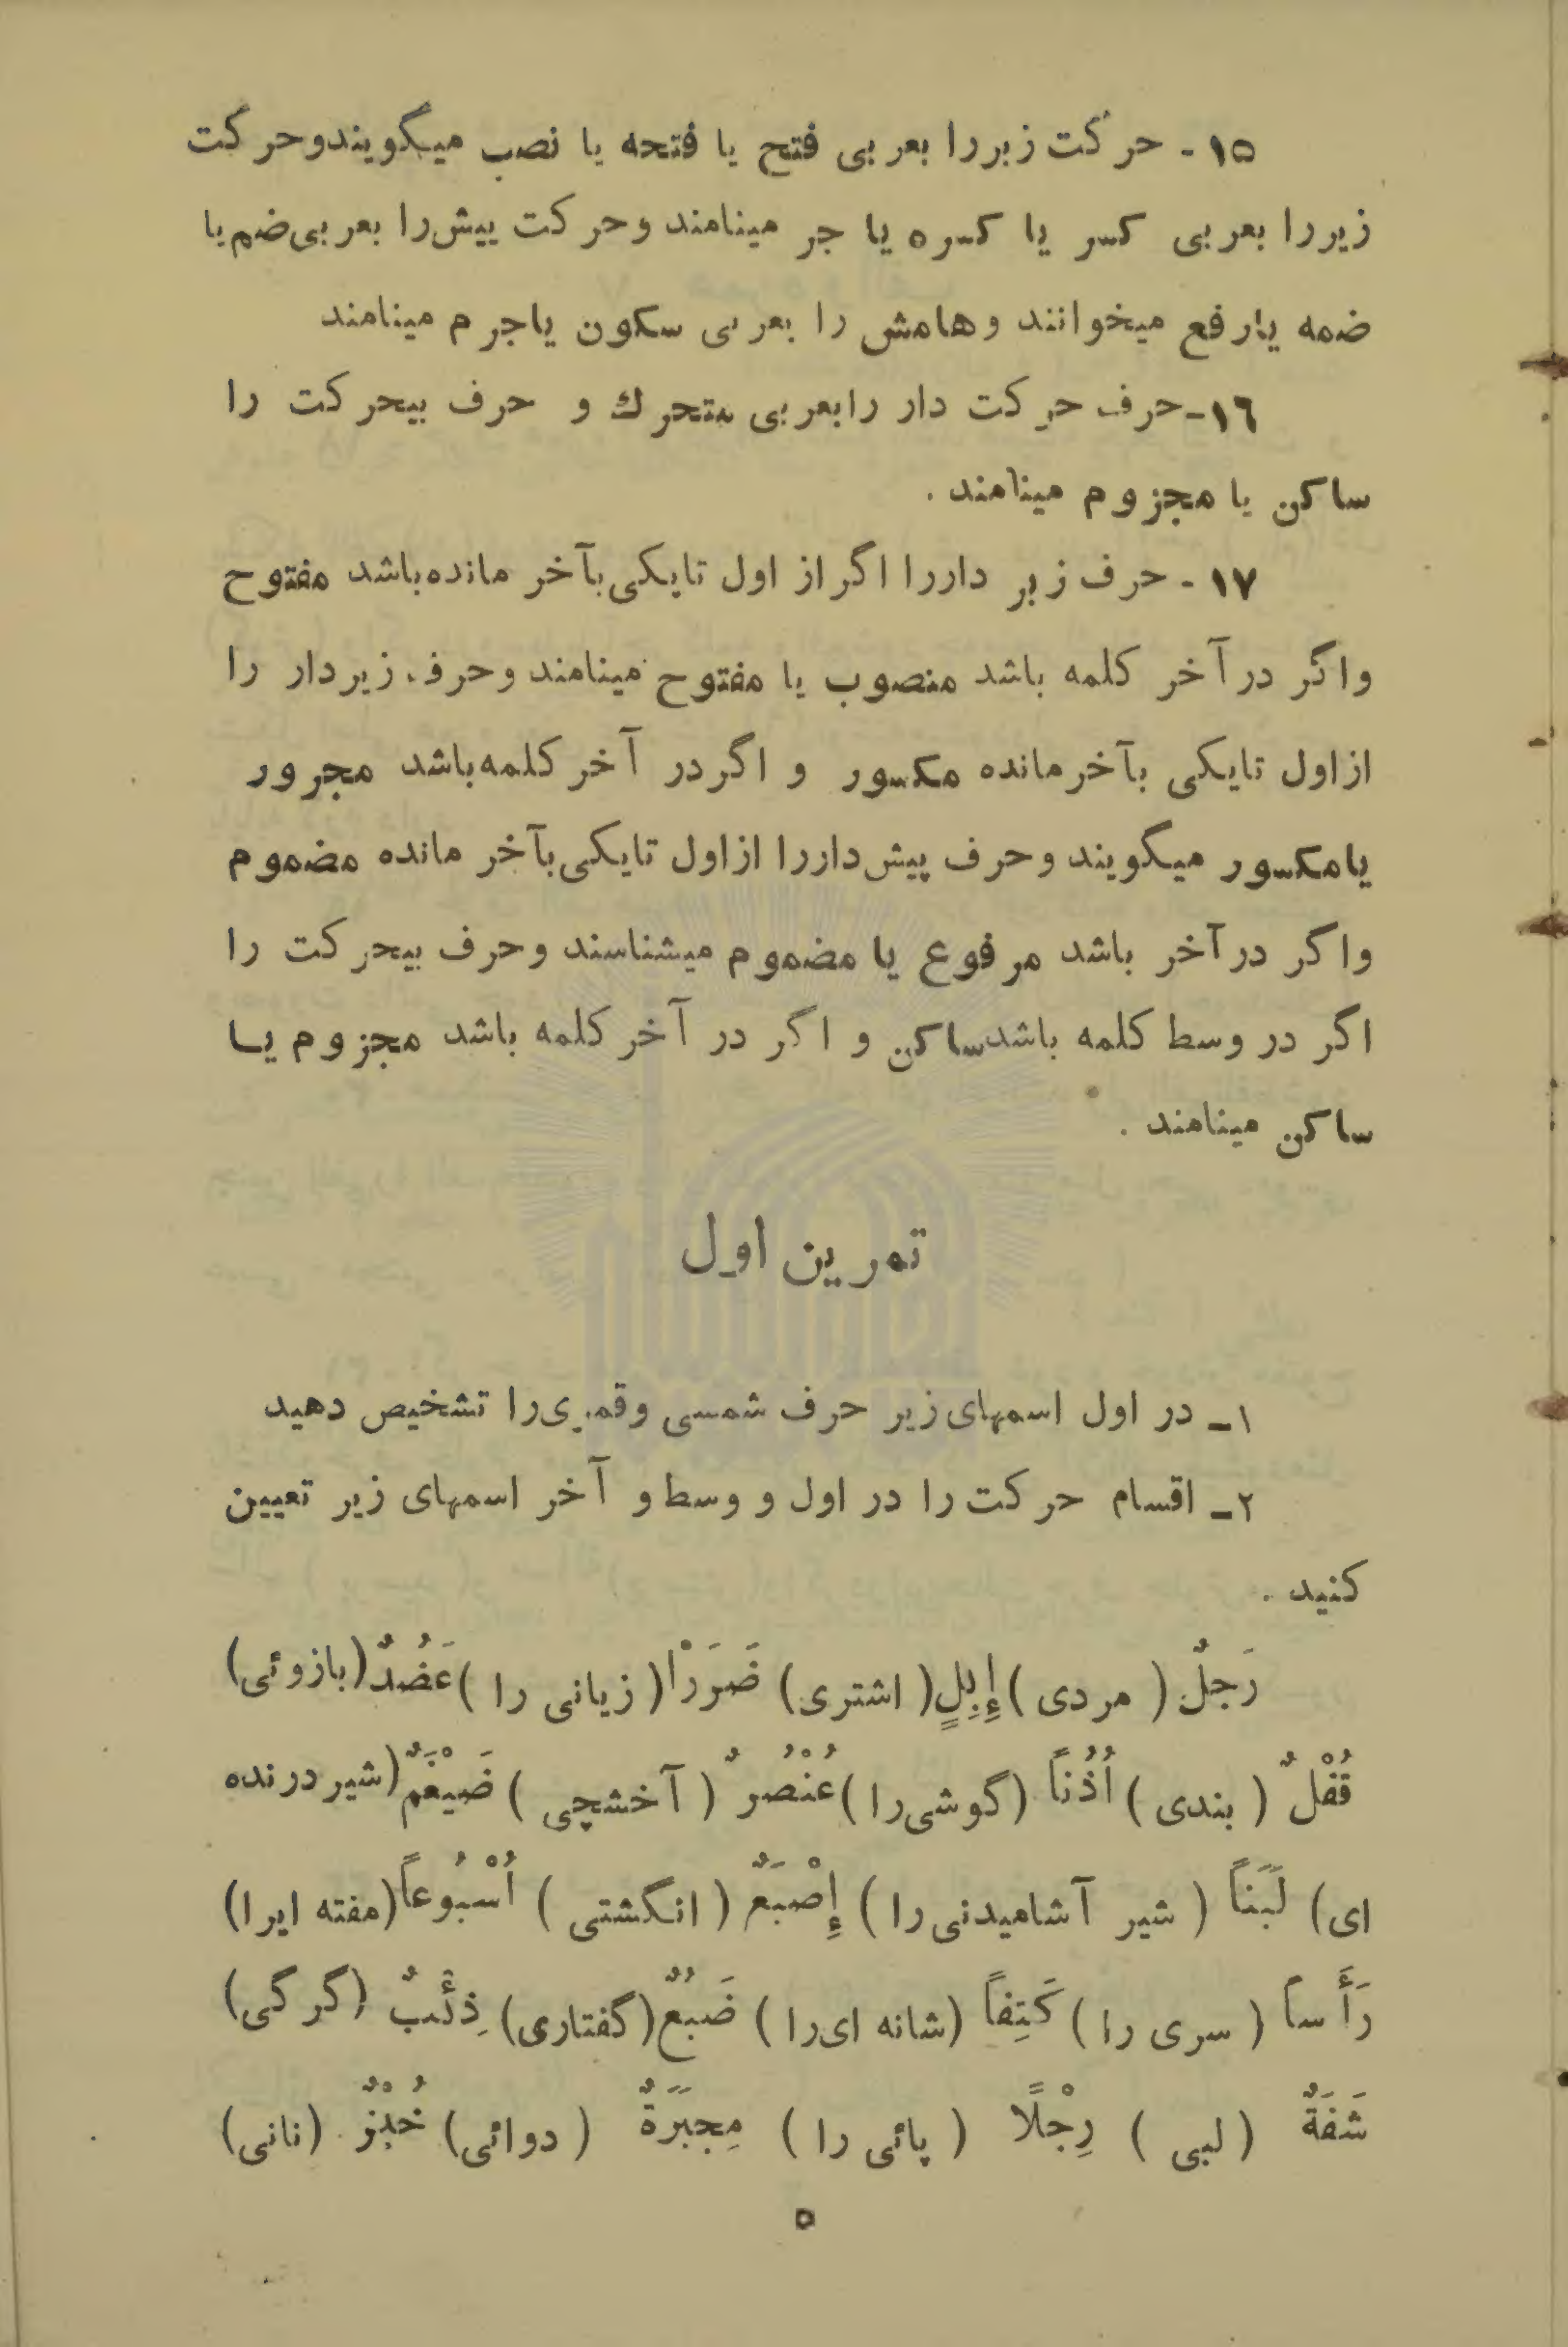 ۱۵ - حرکت زبررا بعربی فتح یا فتحه یا نصب میگویندوحرکت
زیررا بعربی کسر یا کسره یا جر مینامند وحرکت پیش‌را بعربی‌ضم‌یا
ضمه یارفع میخوانند وهامش را بعربی سکون یاجرم مینامند
۱٦-حرف حرکت دار رابعربی متحرك و حرف بیحرکت را
ساکن یا مجزوم مینامند .
۱۷ - حرف زبر داررا اگراز اول تایکی‌بآخر مانده‌باشد مفتوح
واگر درآخر کلمه باشد منصوب یا مفتوح مینامند وحرف زیردار را
ازاول تایکی بآخرمانده مکسور و اگردر آخرکلمه‌باشد مجرور
یامکسور میگویند وحرف پیش‌داررا ازاول تایکی‌بآخر مانده مضموم
واکر درآخر باشد مرفوع یا مضموم میشناسند وحرف بیحرکت را
اگر در وسط کلمه باشدساکن و اگر در آخرکلمه باشد مجزوم یا
ساکن مینامند .
تمرین اول
۱ـ در اول اسمهای‌زیر حرف شمسی وقمری‌را تشخیص دهید
۲ـ اقسام حرکت را در اول و وسط و آخر اسمهای زیر تعیین
کنید .
رَجلٌ ( مردی ) إِبِلٍ ( اشتری ) ضَرَرْا ( زیانی را ) عَضُدٌ (بازوئی)
قُفْلٌ ( بندی ) اُذُناً (گوشی‌را ) عُنْصُرٌ ( آخشچی ) ضَیْغَمٌ (شیردرنده
ای) لَبَناً ( شیر آشامیدنی‌را ) إِصْبَعٌ ( انگشتی ) اُسْبُوعاً (مفته ایرا)
رَأَساً ( سری را ) کَتِفاً (شانه ای‌را ) ضَبُعٌ (گفتاری) ذِئْبٌ (گرگی)
شَفَةٌ ( لبی ) رِجْلًا ( پائی را ) مِحبَرَةٌ ( دوائی) خُبْزٌ (نانی)
۵